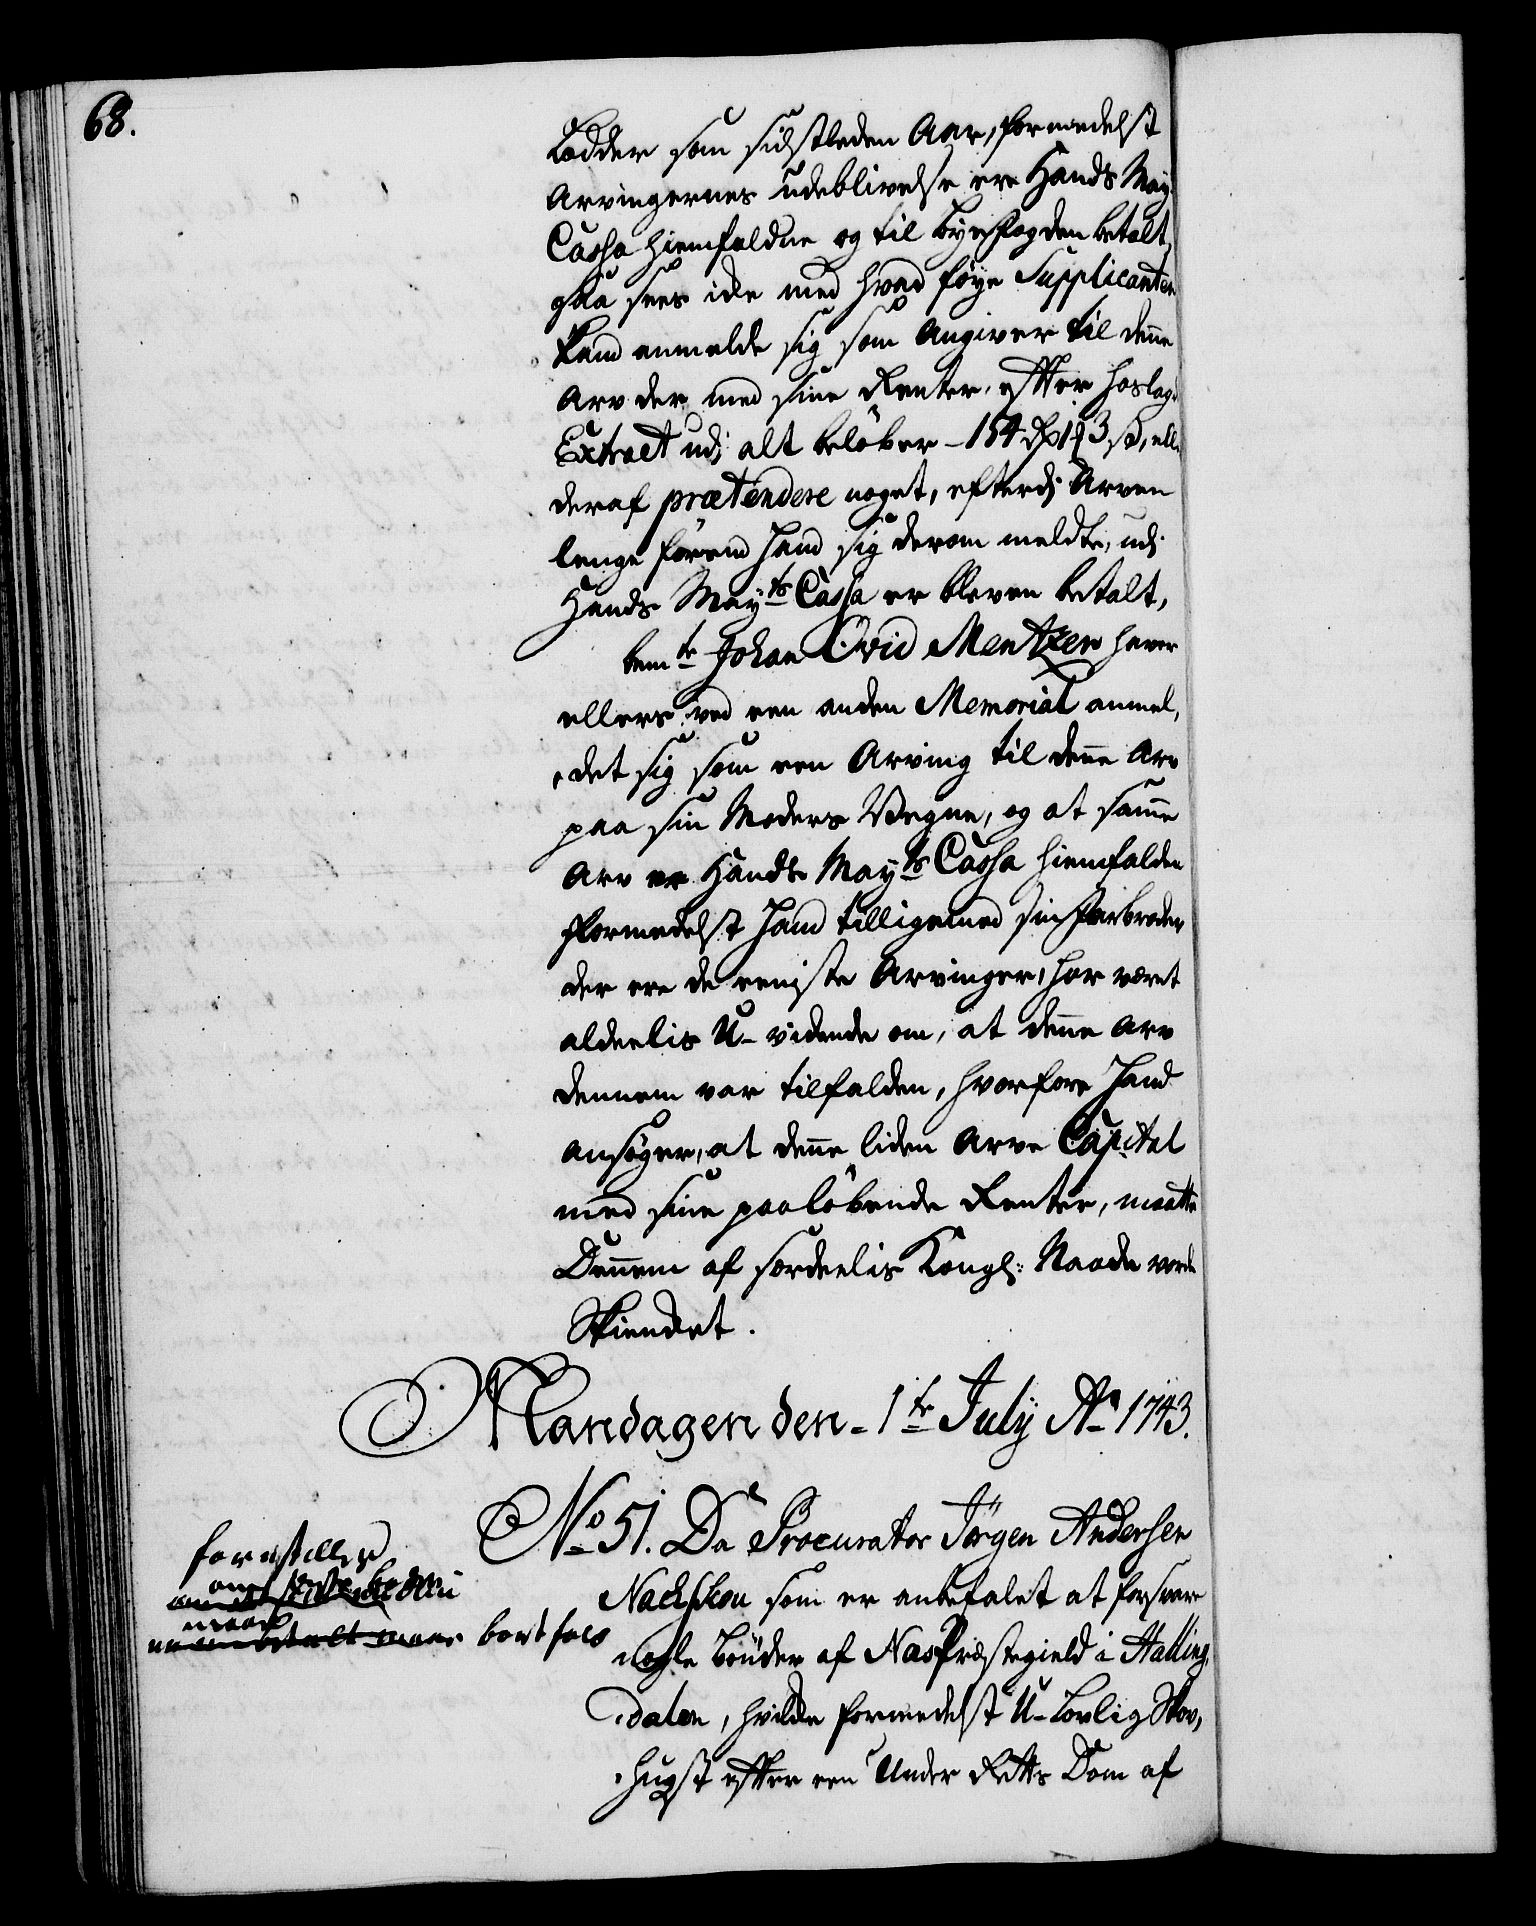 68.
Lodder som sidstleden Aar, formedelst
Arvingernes udeblivelse ere Hands May
Cassa hiemfaldne og til Byefogden betalt,
saa sees icke med hvad føye Supplicanten
kand anmelde sig som Angiver til denne
Arv der med sine Renter, efter hoslag
Extract udj alt beløber 154 Rdr 1 3 ß, ell
deraf prætendere noget, efterdj Arven
lenge førend hand sig derom meldte, udj
Hands Mayts Cassa er bleven betalt,
bemte Johan Ovid Mentzen haver
ellers ved een anden Memorial anmel,
det sig som een Arving til denne Arv
paa sin Moders Vegne, og at samme
Arv er Hands Mayts Cassa hiemfalden
formedelst hand tilligemed sin Farbroder
der ere de eeniste Arvinger, har været
aldeelis U-vidende om, at denne Arv
dennem var tilfalden, hvorfore hand
ansøger, at denne liden Arve Capital
med sine paaløbende Renter, maatte
Dennem af særdeelis Kongl: Naade vorde
Skiencket.
Mandagen den 1te July Ao 1743.
No 51. Da Procurator Jörgen Andersen
Nachschou som er anbefalet at forsvare
nogle Bønder af Næs Præstegield i Halling,
dalen, hvilcke formedelst U-Lovlig Skov,
hugst efter een Under Retts Dom af
forestiller
om
bortfals